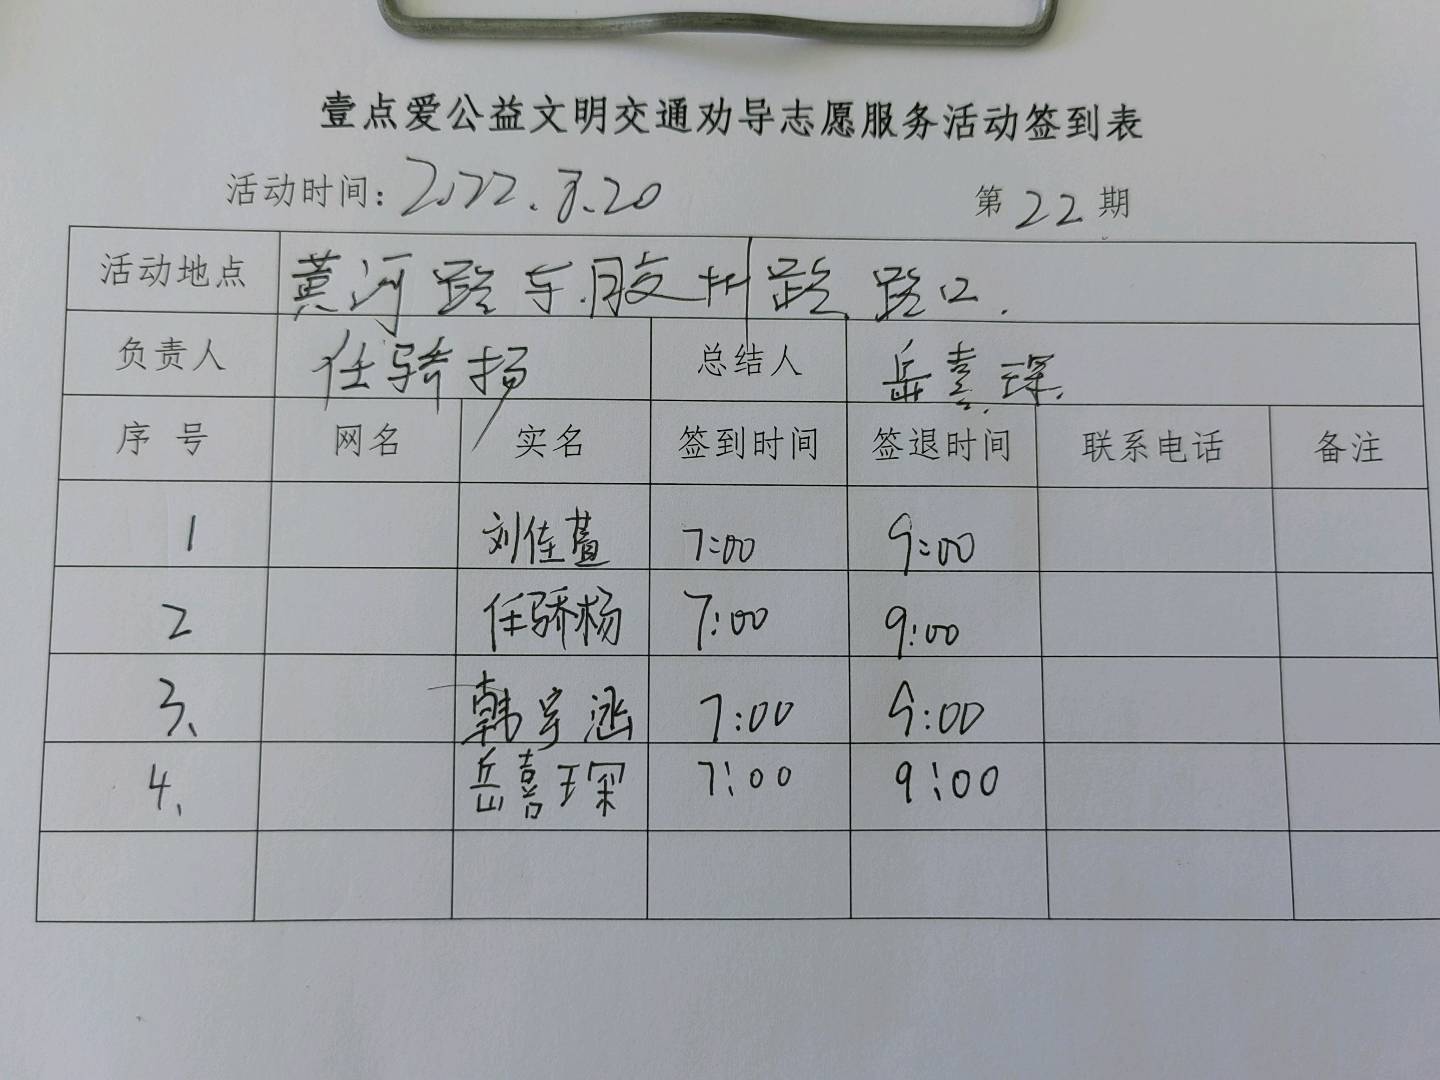 壹点爱公益文明交通劝导志愿服务活动签到表
活动时间：2022.8.20 第22期
活动地点 黄河路东胶州路路口.
负责人 任骄扬 总结人 岳喜琛.
序号 网名 实名 签到时间 签退时间 联系电话 备注
1 刘佳 7:00 9:00
2 任骄杨 7:00 9:00
3、 韩宇涵 7:00 9:00
4、 岳喜琛 7:00 9:00